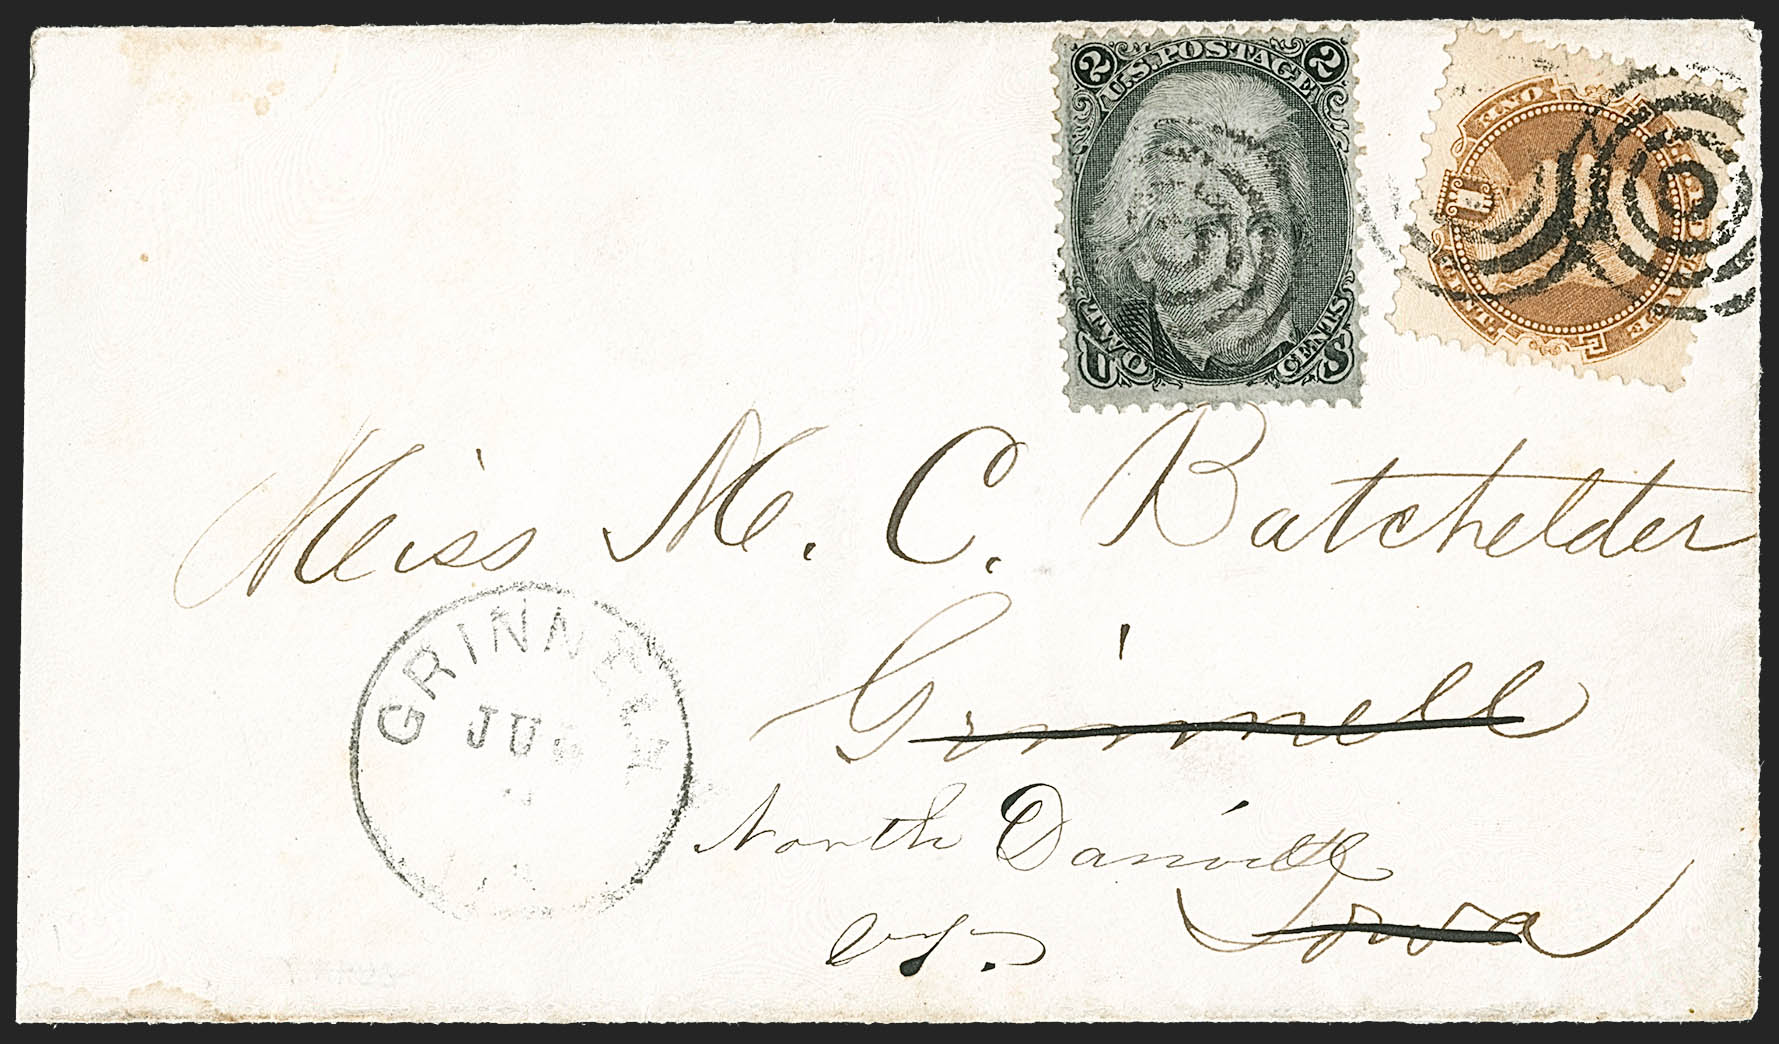 2 U.S. POSTAGE 2
TWO CENTS
U S
ONE
Miss M. C. Batchelder
GRINNELL
Grinnell
North Danville
Vt.
Iowa